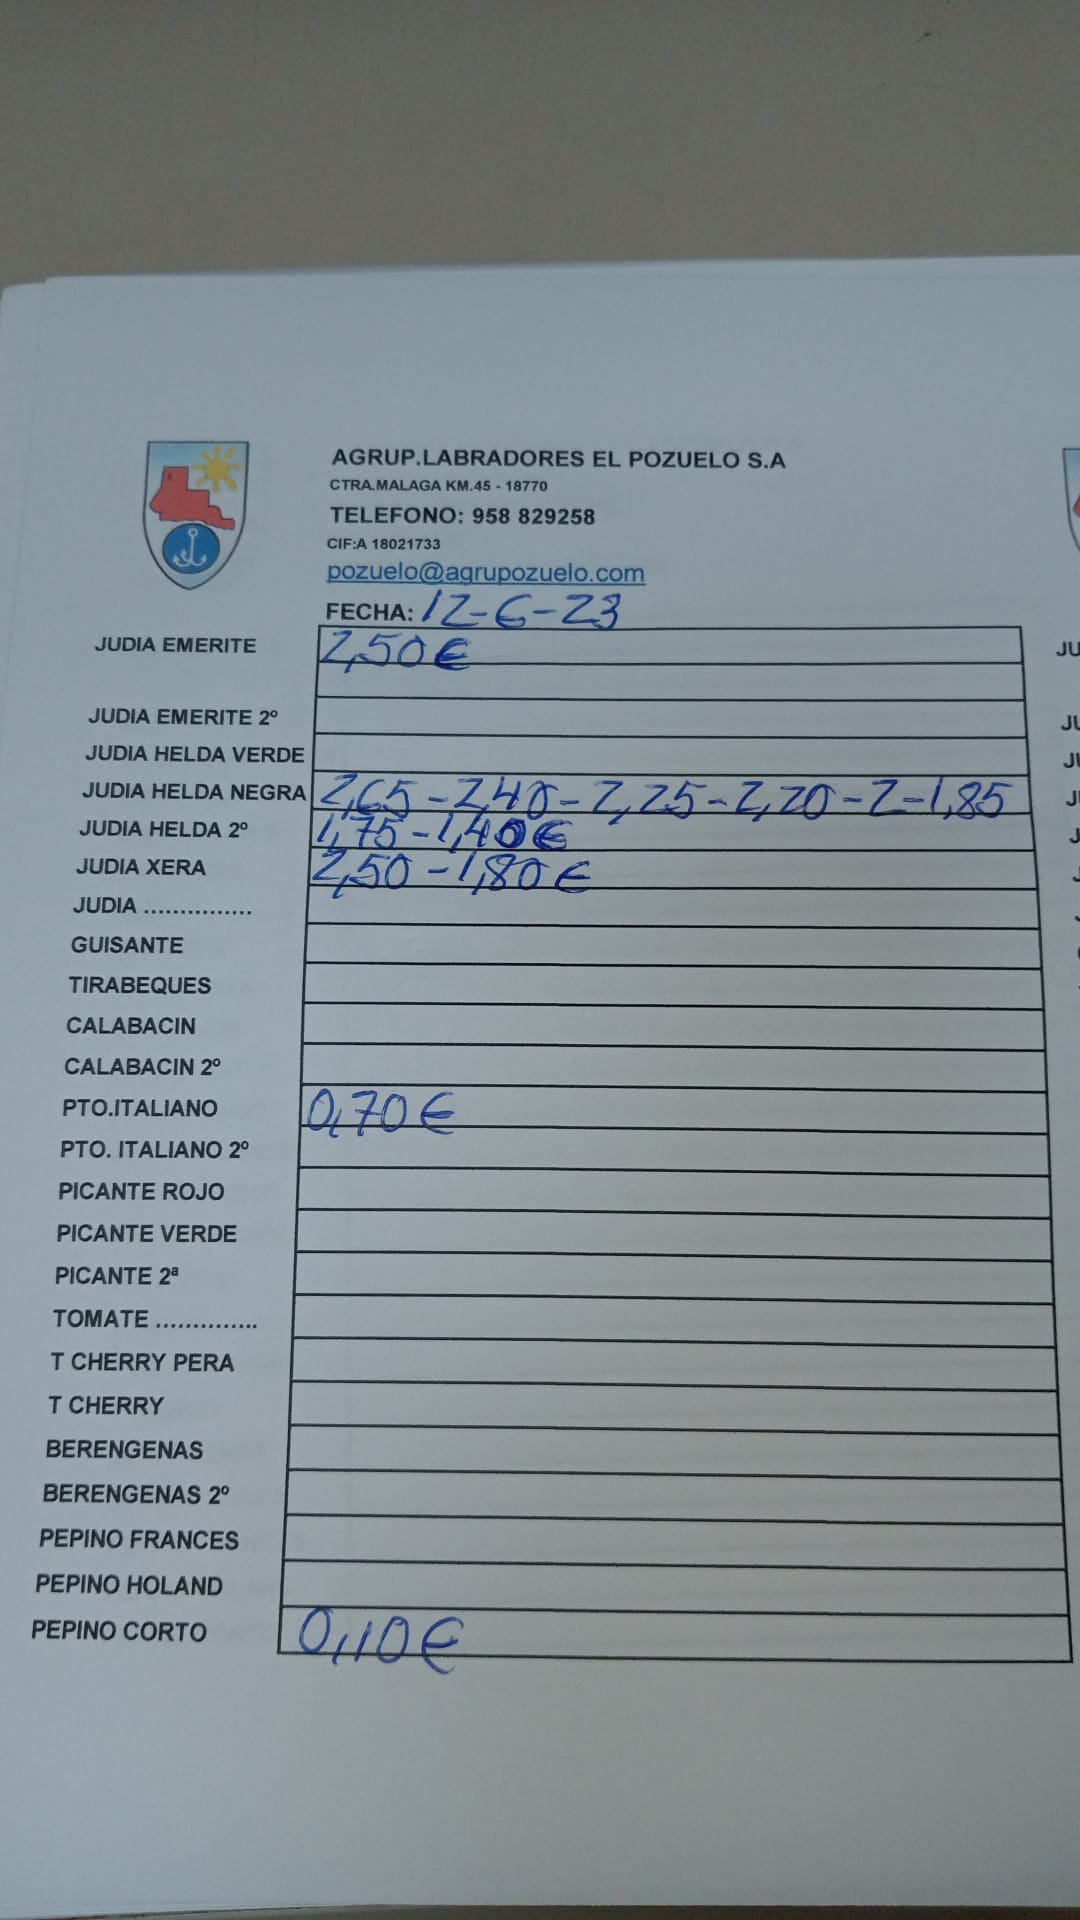 AGRUP.LABRADORES EL POZUELO S.A
CTRA.MALAGA KM.45 - 18770
TELEFONO: 958 829258
CIF:A 18021733
pozuelo@agrupozuelo.com
FECHA: 12-6-23
JUDIA EMERITE 2,50€
JUDIA EMERITE 2º
JUDIA HELDA VERDE
JUDIA HELDA NEGRA 2,65-2,40-2,25-2,20-2-1,85
JUDIA HELDA 2º 1,75-1,40€
JUDIA XERA 2,50-1,80€
JUDIA ...............
GUISANTE
TIRABEQUES
CALABACIN
CALABACIN 2º
PTO.ITALIANO 0,70€
PTO. ITALIANO 2º
PICANTE ROJO
PICANTE VERDE
PICANTE 2ª
TOMATE ..............
T CHERRY PERA
T CHERRY
BERENGENAS
BERENGENAS 2º
PEPINO FRANCES
PEPINO HOLAND
PEPINO CORTO 0,10€